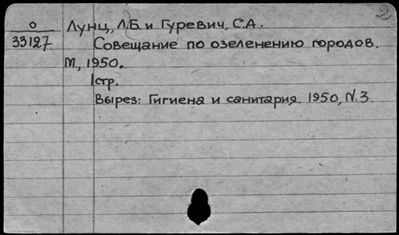 2
О Лунц, Л.Б. и Гуревич, С.А.
33127 Совещание по озеленению городов.
М., 1950.
1стр.
Вырез: Гигиена и санитария. 1950, N.3.